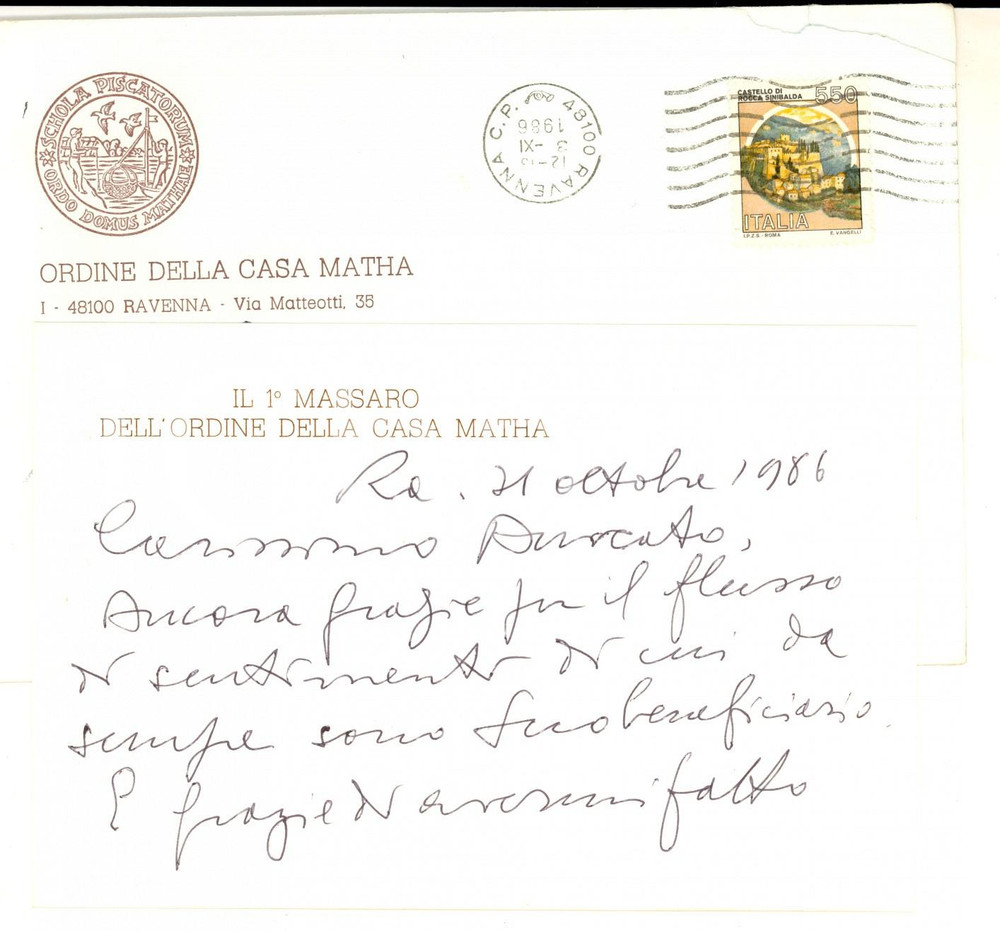 SCHOLA PISCATORIUM
ORDO DOMUS MATHAE
48100 RAVENNA C.P.
12-13
3 -XI
1986
CASTELLO DI
ROCCA SINIBALDA
550
ITALIA
I.P.Z.S. - ROMA E. VANGELLI
ORDINE DELLA CASA MATHA
I - 48100 RAVENNA - Via Matteotti, 35
IL 1º MASSARO
DELL'ORDINE DELLA CASA MATHA
Ra. 31 ottobre 1986
Carissimo
Ancora grazie per il flusso
di sentimento di cui da
sempre sono Suo beneficiario.
E grazie di avermi fatto